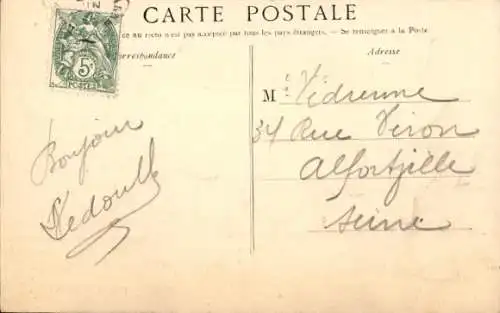 CARTE POSTALE
ce au recto n'est pas accepté par tous les pays étrangers. — Se renseigner à la Poste
orrespondance
Adresse
5c
POSTES
Mle Vedrenne
34 Rue Véron
Alfortville
Seine
Bonjour